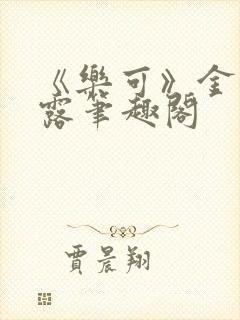 《樂可》金
露笔趣閣
賈晨翔